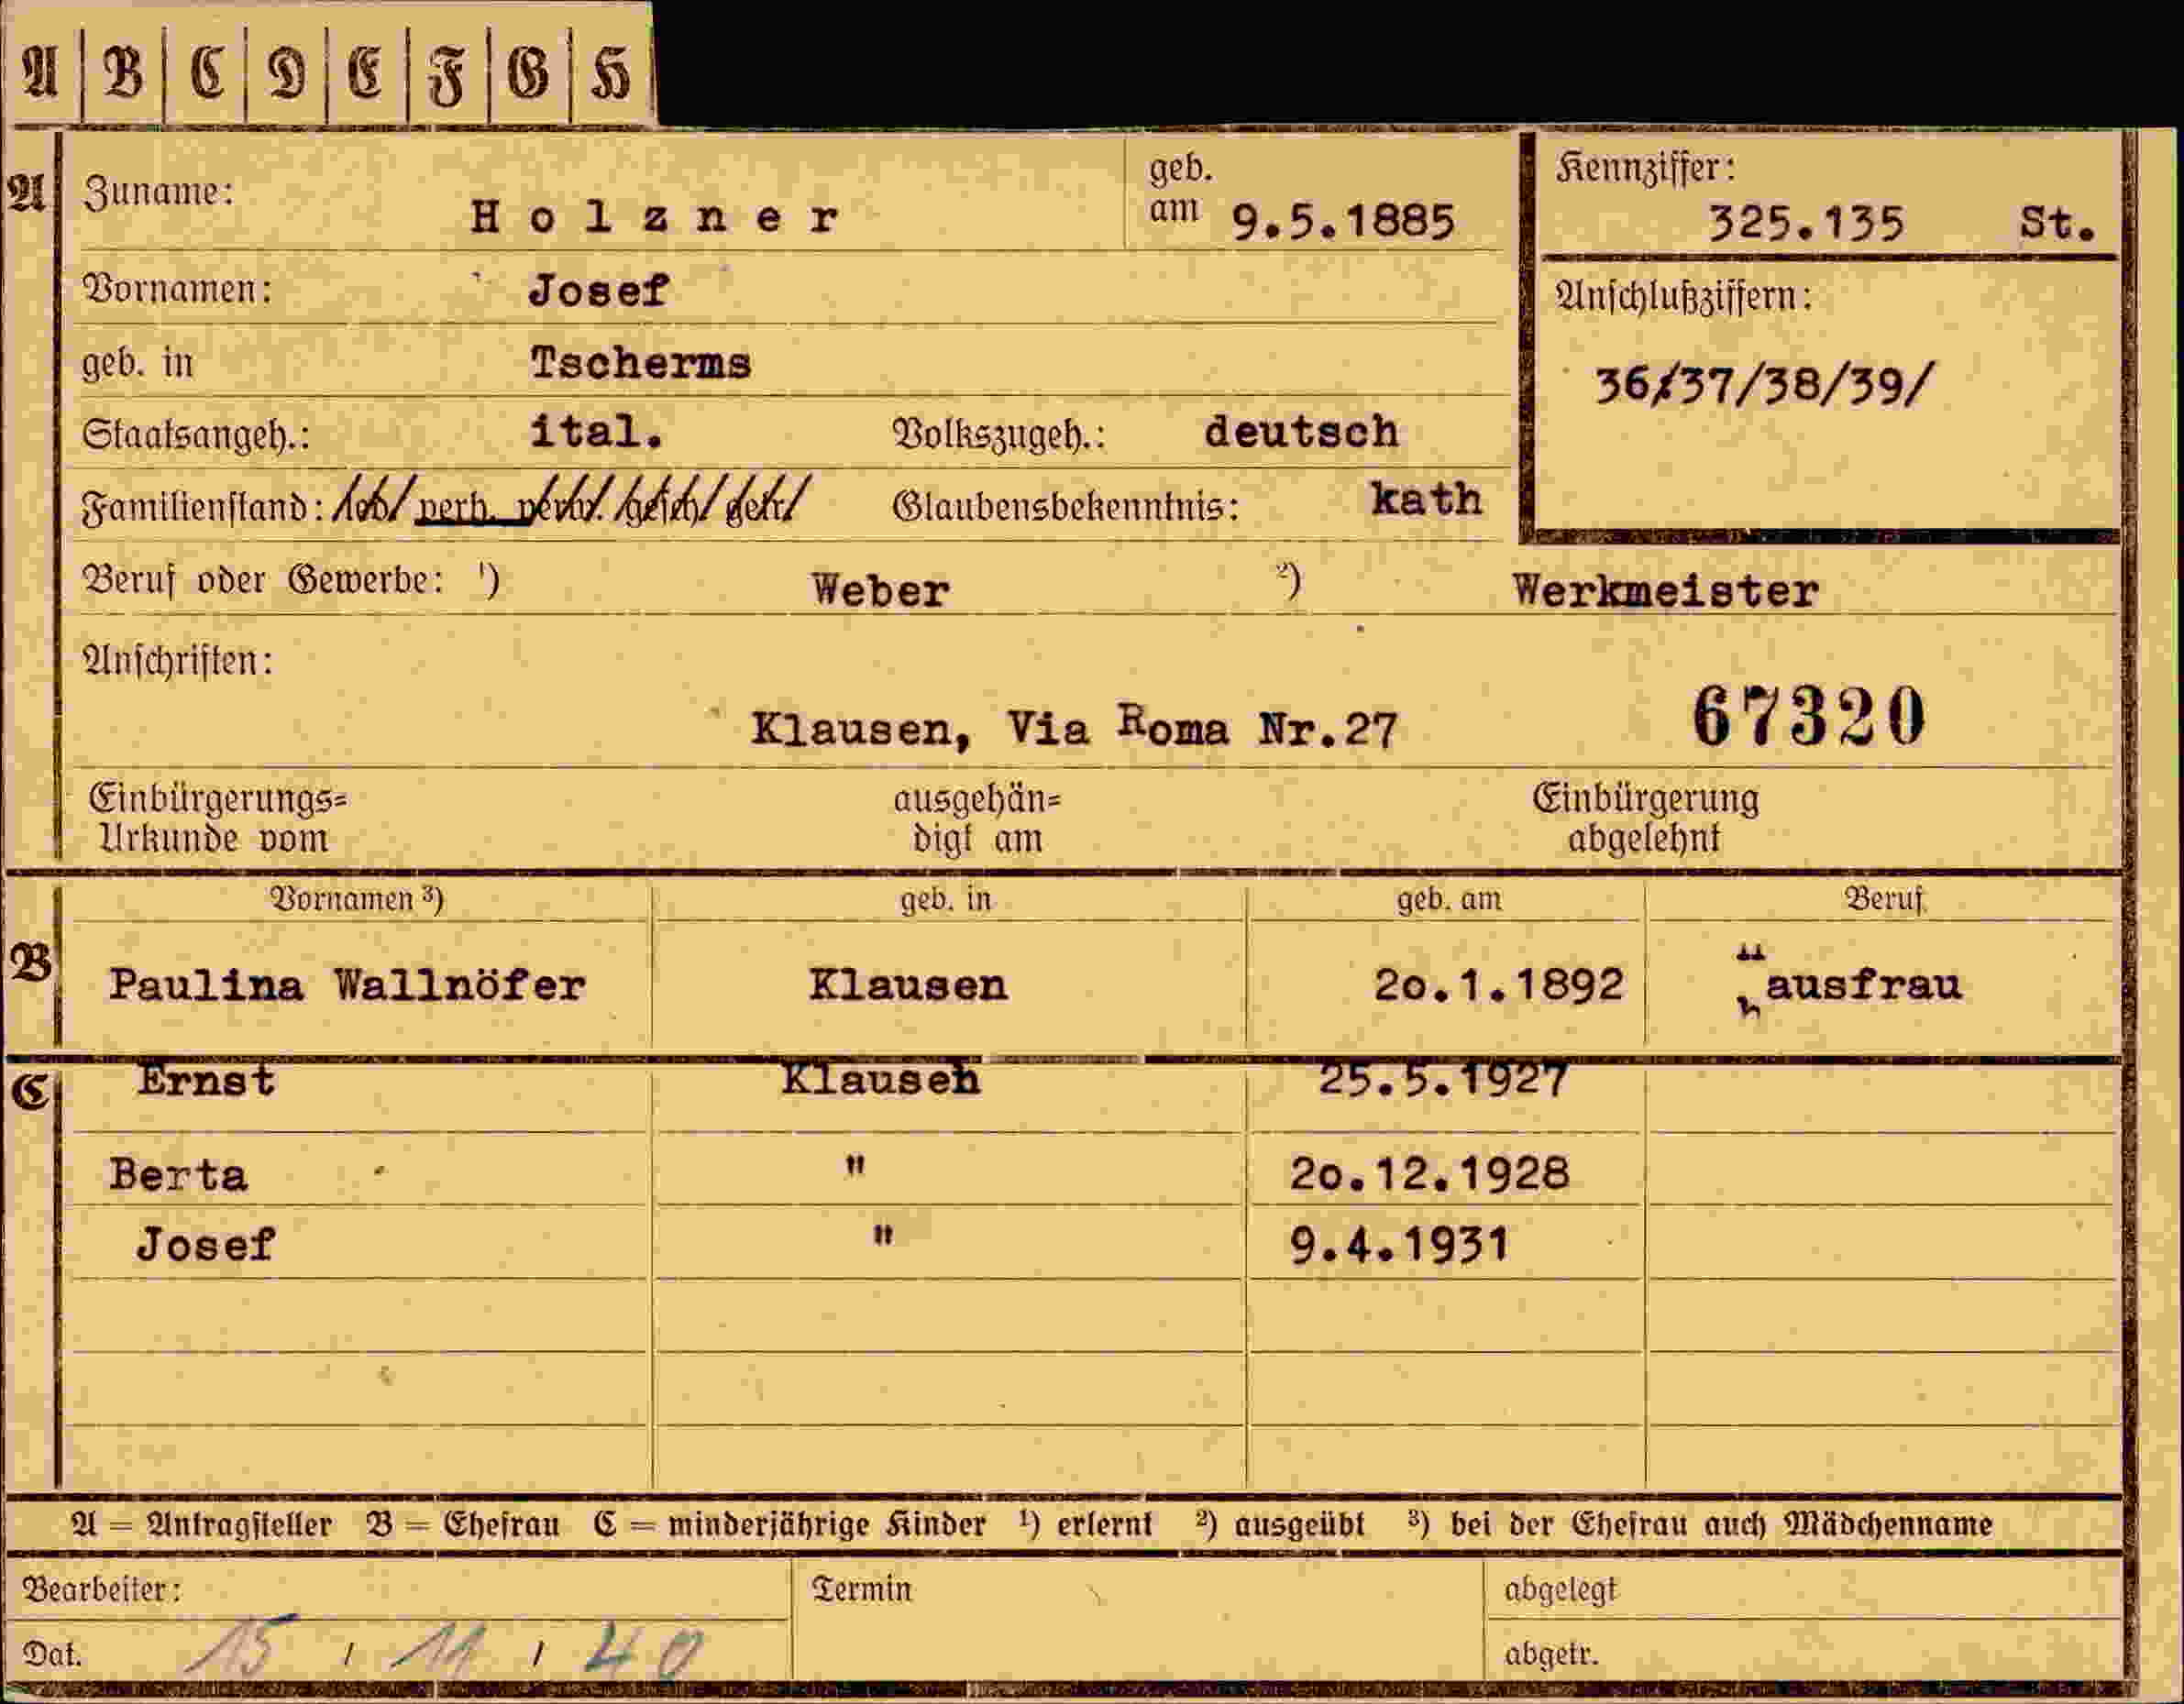 A B C D E F G H
A Zuname: Holzner geb. am 9.5.1885 Kennziffer: 325.135 St.
Vornamen: Josef Anschlußziffern:
geb. in Tscherms 36/37/38/39/
Staatsangeh.: ital. Volkszugeh.: deutsch
Familienstand: led. verh. verw. gesch. getr. Glaubensbekenntnis: kath
Beruf oder Gewerbe: 1) Weber 2) Werkmeister
Anschriften:
Klausen, Via Roma Nr.27 67320
Einbürgerungs= ausgehän= Einbürgerung
Urkunde vom digt am abgelehnt
Vornamen 3) geb. in geb. am Beruf
B Paulina Wallnöfer Klausen 2o.1.1892 Hausfrau
C Ernst Klausen 25.5.1927
Berta " 2o.12.1928
Josef " 9.4.1931
A = Antragsteller B = Ehefrau C = minderjährige Kinder 1) erlernt 2) ausgeübt 3) bei der Ehefrau auch Mädchenname
Bearbeiter: Termin abgelegt
Dat. 15 / 11 / 40 abgetr.